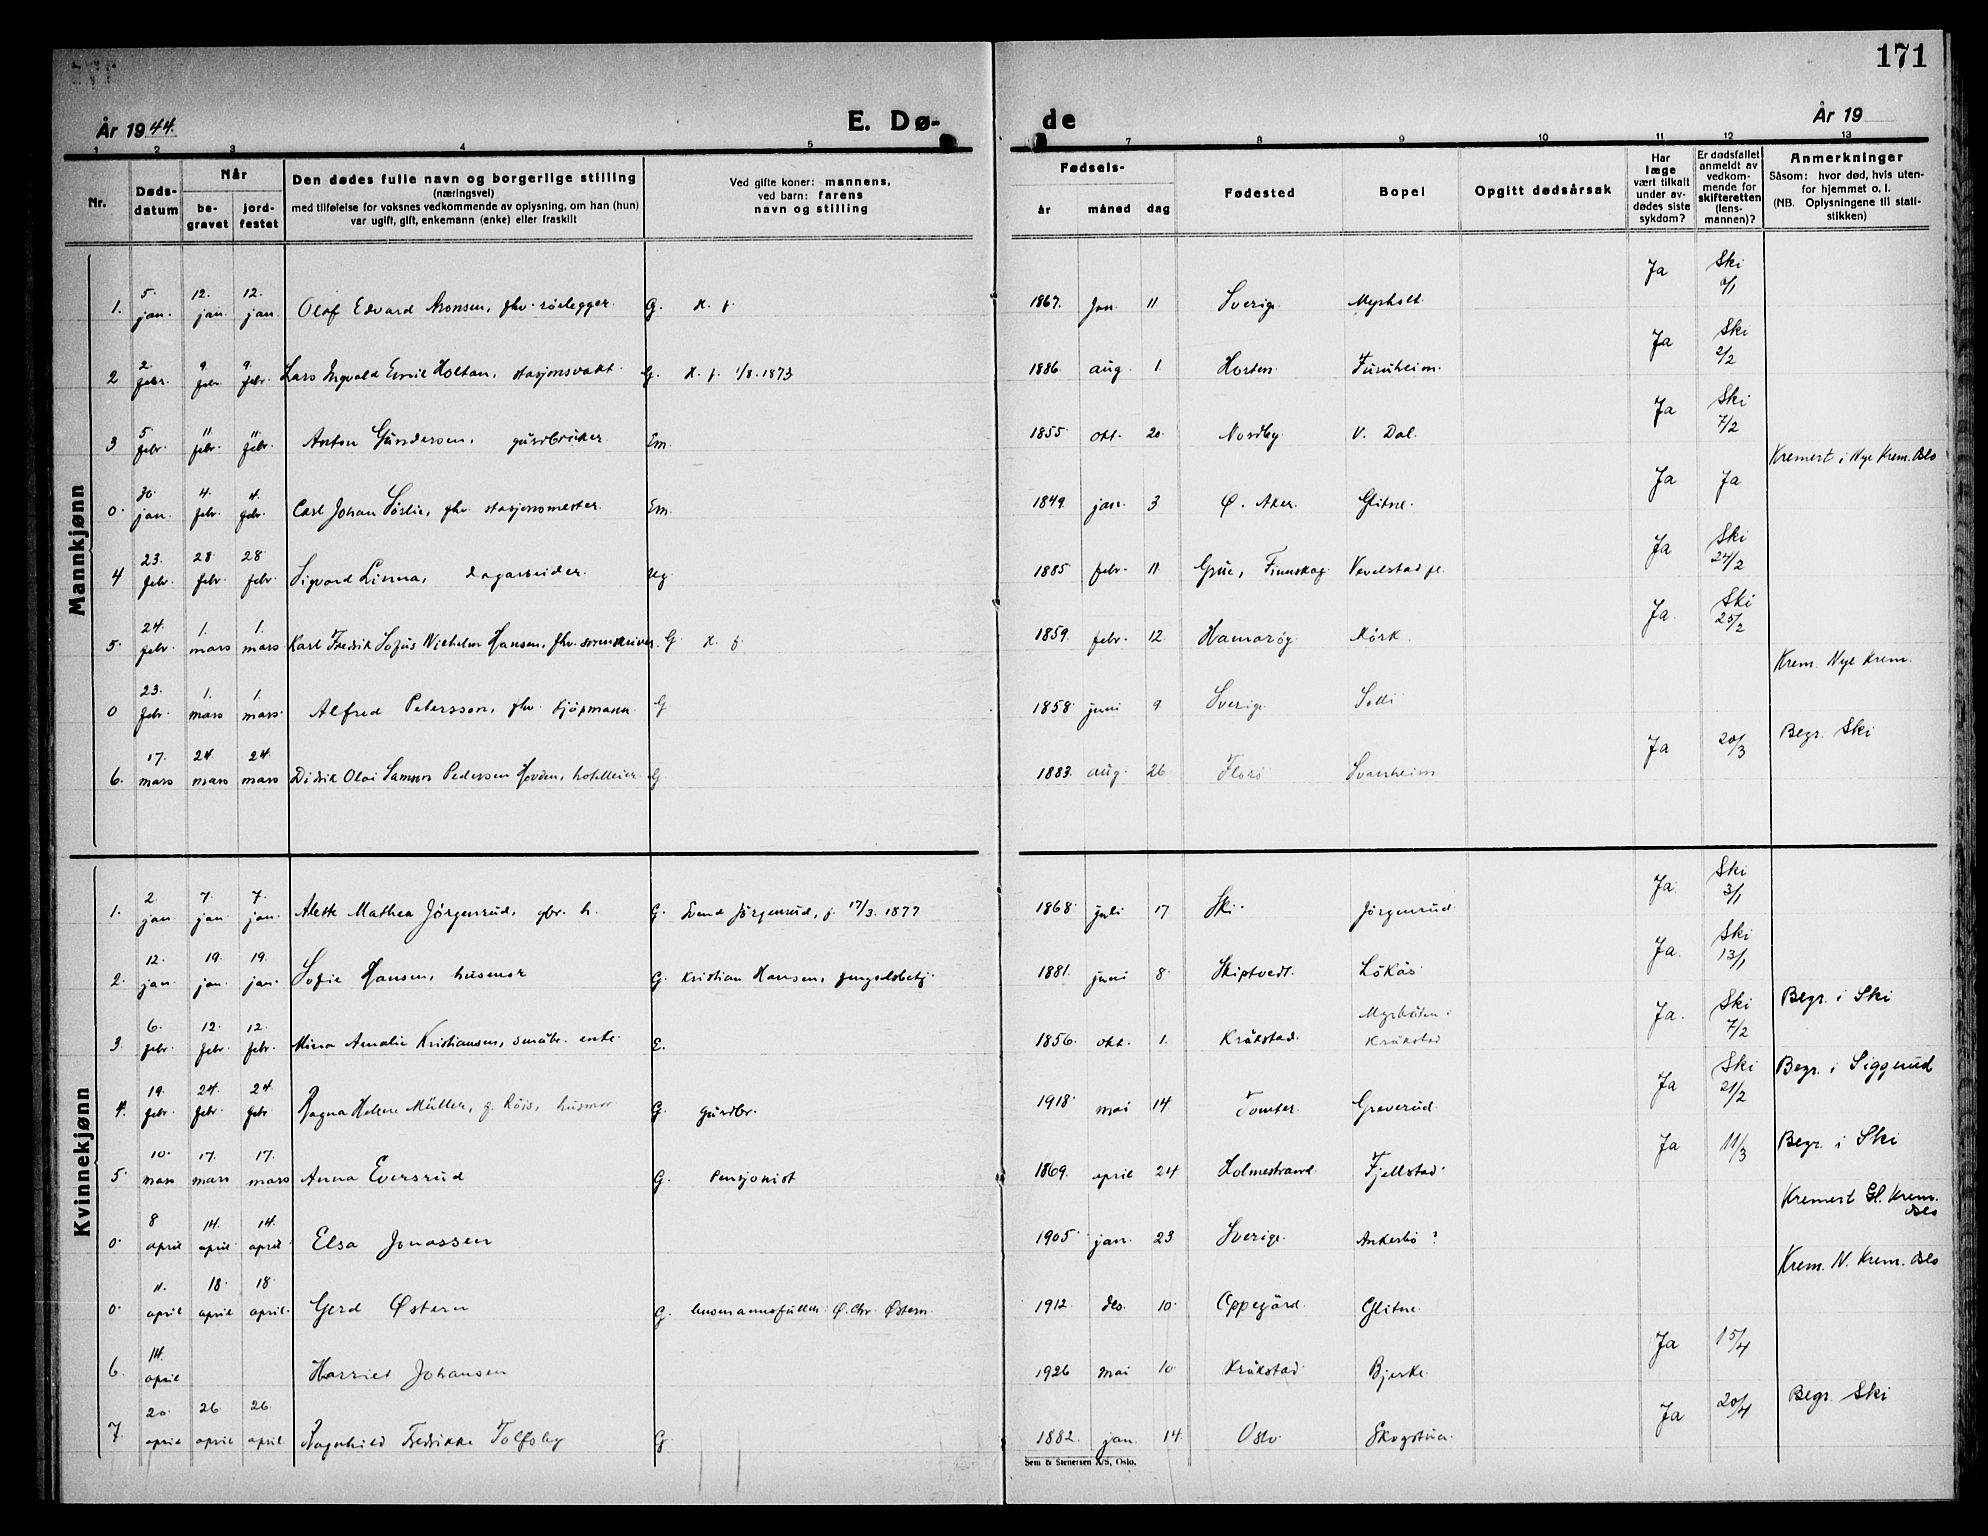 171
År 1944.
E. Dø-
de
År 19
1 2 3 4 5
7 8 9 10 11 12 13
Nr.
Døds-
datum
Når
be-
gravet
jord-
festet
Den dødes fulle navn og borgerlige stilling
(næringsvei)
med tilføielse for voksnes vedkommende av oplysning, om han (hun)
var ugift, gift, enkemann (enke) eller fraskilt
Ved gifte koner: mannens,
ved barn: farens
navn og stilling
Fødsels-
år måned dag
Fødested
Bopel
Opgitt dødsårsak
Har
læge
vært tilkalt
under av-
dødes siste
sykdom?
Er dødsfallet
anmeldt av
vedkom-
mende for
skifteretten
(lens-
mannen)?
Anmerkninger
Såsom: hvor død, hvis uten-
for hjemmet o. l.
(NB. Oplysningene til stati-
stikken)
Mannkjønn
1. 5. jan. 12. jan. 12. jan. Olaf Edvard Aronsen, fhv. rörlegger. G. H. f. 1867. Jan. 11 Sverige Myrholt. Ja Ski
2 2. febr. 9. febr. 9. febr. Lars Ingvald Emil Holtan, stasjonsvakt. G. H. f. 1/8. 1873 1886. aug. 1. Horten. Furuheim. Ja Ski 2/2
3 5. febr. 11. febr. 11. febr. Anton Gundersen, gårdbruker. Em. 1855. okt. 20. Nordby V. Dal. Ja Ski 7/2
0. 30. jan. 4. febr. 4. febr. Carl Johan Sörlie, fhv. stasjonsmester. Em. 1849. jan. 3 Ø. Aker. Glitne. Ja Ja Kremert i Nye Krem. Oslo
4 23. febr. 28. febr. 28. febr. Sigvard Linna, dagarbeider. Ug. 1885 febr. 11. Grue, Finnskog. Vevelstad pl. Ja Ski 24/2
5. 24. febr. 1. mars 1. mars Karl Fredrik Sofus Vilhelm Hansen, fhv. sorenskriver G. H. f. 1859. febr. 12. Hamarøy Mörk. Ja. Ski 25/2
0 23. febr. 1. mars 1. mars. Alfred Petersson, fhv. kjöpmann G 1858. juni 9 Sverige Solli Krem. Nye Krem.
6. 17. mars 24. mars 24. mars Didrik Olai Samson Pedersen Hovden, hotelleier G 1883. aug. 26 Florö Svarheim Ja 20/3 Begr. Ski
Kvinnekjønn
1. 2 jan 7. jan. 7. jan. Alette Mathea Jörgensrud, gbr. h. G. Svend Jörgensrud, f. 17/3. 1877 1868. juli 17 Ski. Jörgensrud Ja. Ski 3/1
2. 12. jan. 19. jan. 19. jan. Sofie Hansen, husmor G. Kristian Hansen, fengselsbetj. 1881. juni 8. Skiptvedt. Lökås Ja. Ski 13/1
3. 6. febr. 12. febr. 12. febr. Mina Amalie Kristiansen, småbr. enke E. 1856. okt. 1. Kråkstad. Myrbråten i Kråkstad Ja. Ski 7/2 Begr. i Ski
4. 19. febr. 24. febr. 24. febr Ragna Helene Müller, g. Röis, husmor G. gårdbr. 1918. mai 14 Tomter. Greverud. Ja Ski 21/2 Begr. i Siggerud
5. 10. mars 17. mars 17. mars Anna Eversrud G. Pensjonist 1869. april 24 Holmestrand Fjellstad. Ja 11/3 Begr. i Ski
0. 8 april 14. april 14. april Elsa Jonassen 1905. jan. 23 Sverige. Ankerbö? Kremert Gl. Krem. Oslo
0. 11. april 18. april 18. april. Gerd Østern G. lensmannsfullm. O. Chr. Østern. 1912. des. 10. Oppegård. Glitne. Krem. N. Krem. Oslo
6. 14. april Harriet Johansen 1926 mai 10. Kråkstad Bjerke. Ja 15/4
7. 20. april 26. april 26. april Ragnhild Fredrikke Tolfsby G. 1882. jan. 14. Oslo. Skogstua. Ja 20/4 Begr. Ski
Sem & Stenersen A/S, Oslo.